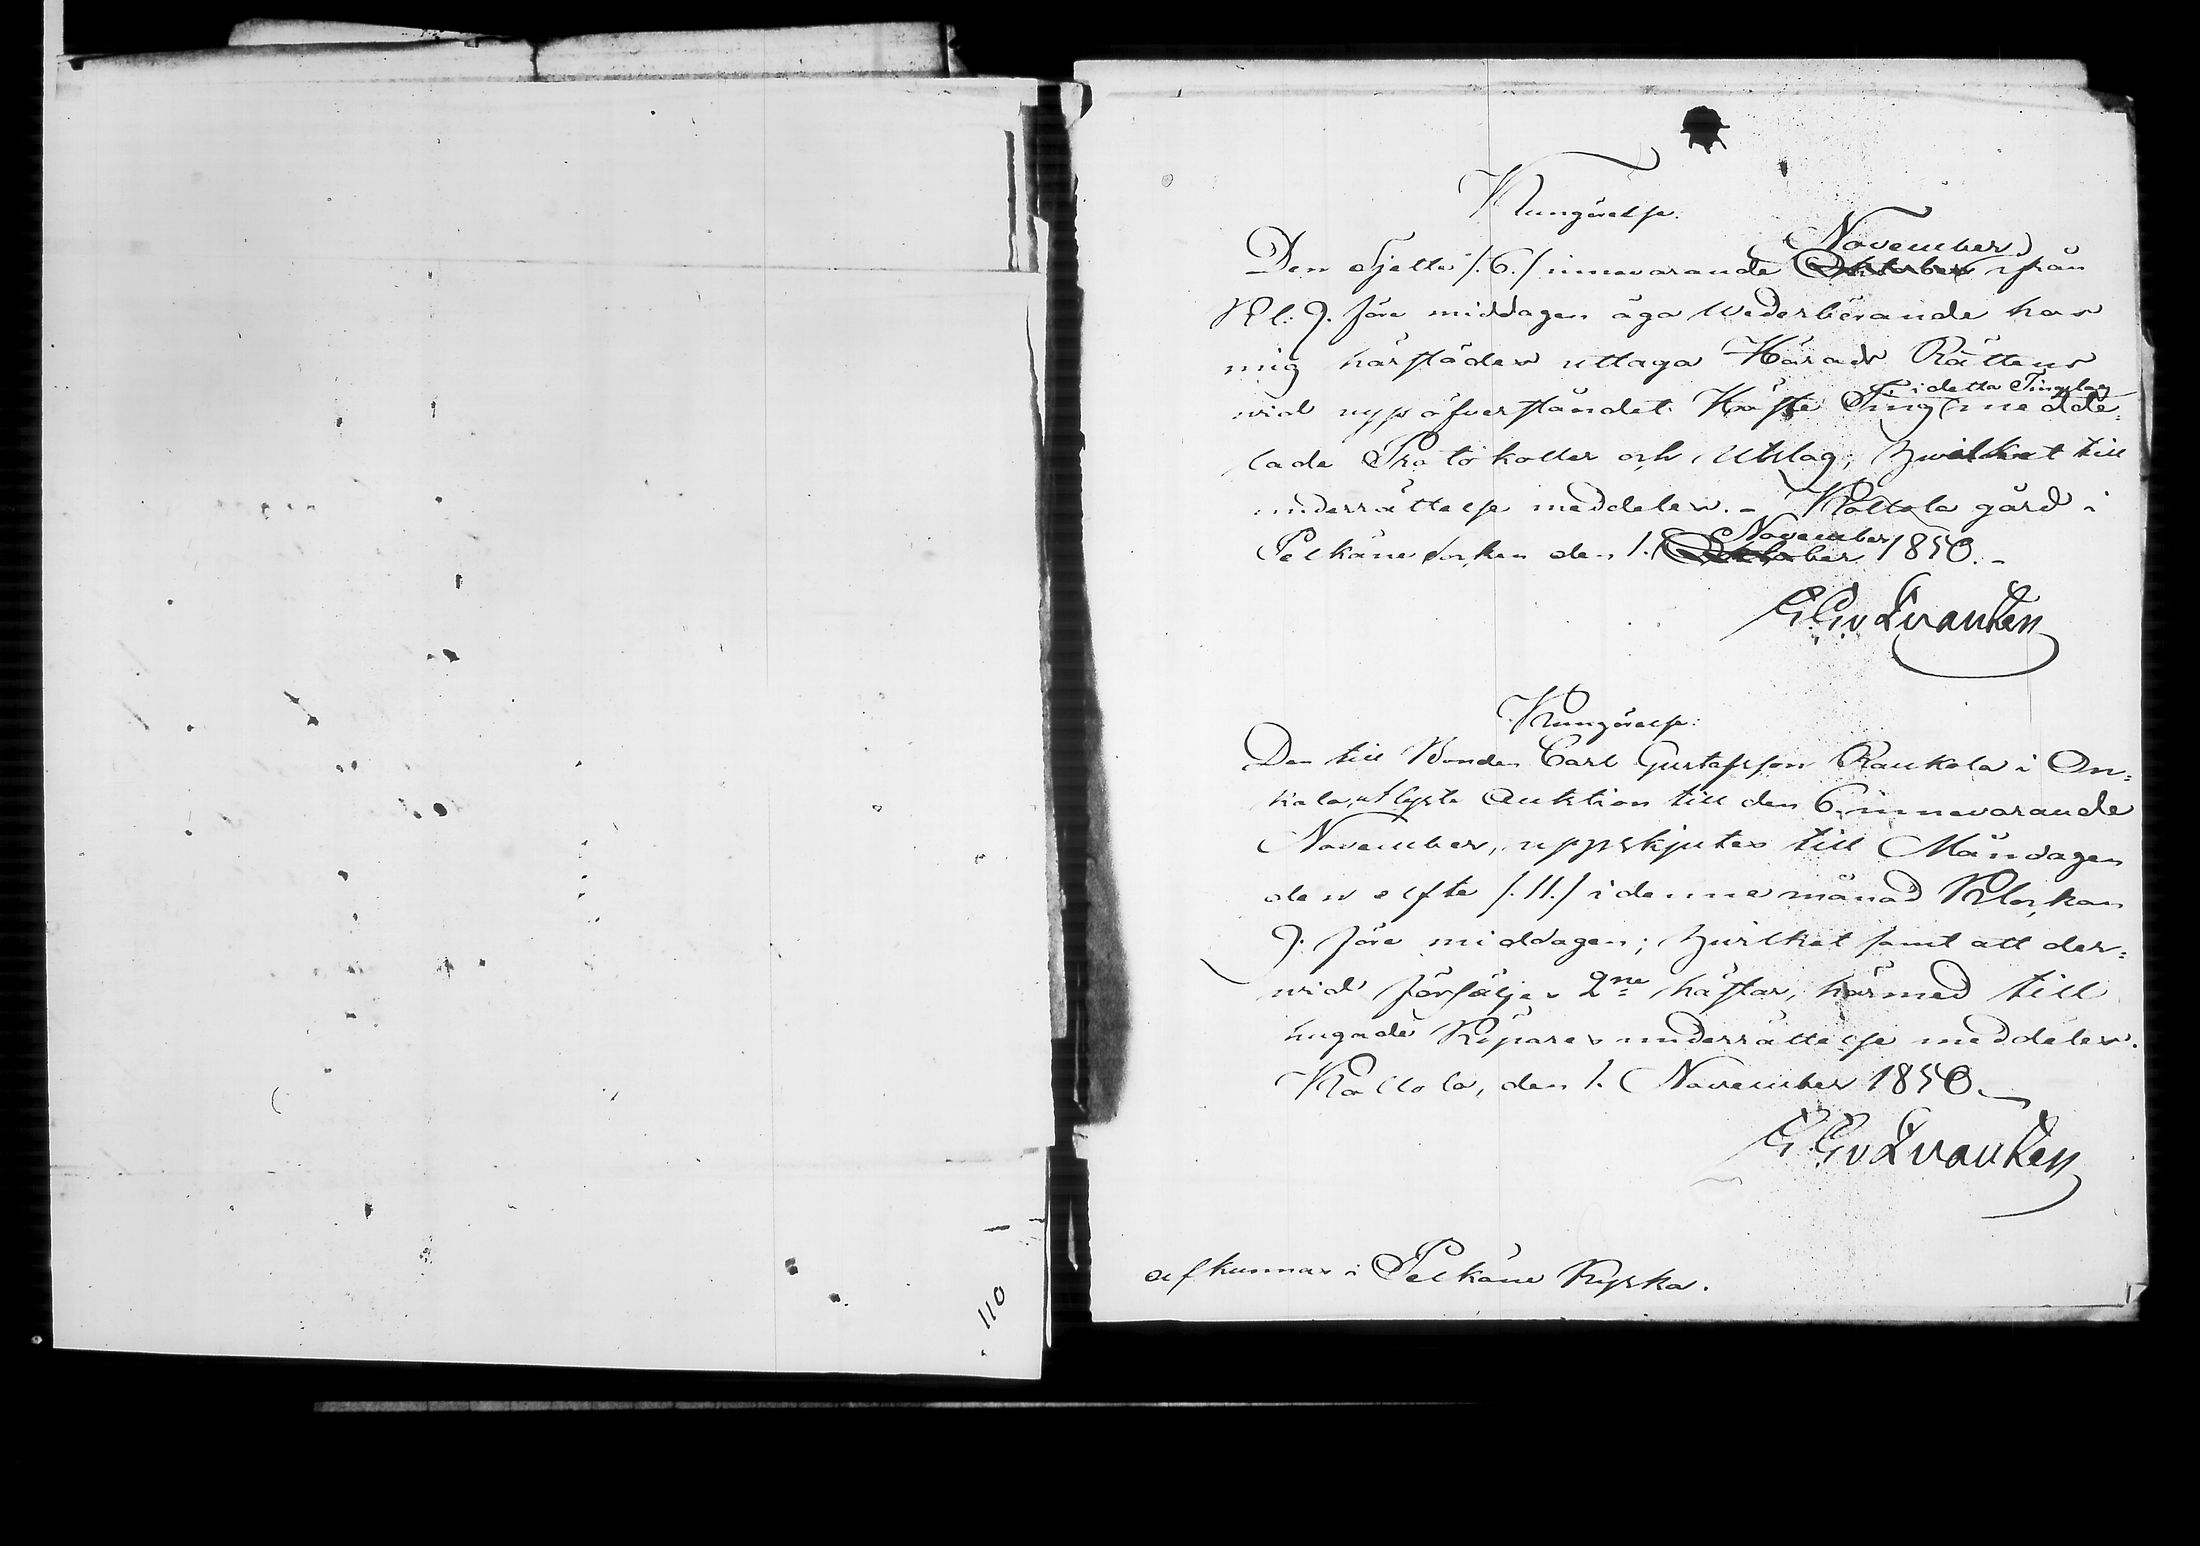 Kungörelse.
November
Den Sjette /:6:/ innevarande Oktober ifrån
Kl: 9. före middagen äga Wederbörande hos
mig härstädes uttaga Härads Rättens
i detta Tingslag
wid nyss öfverståndet Höste Ting medde=
lade Protokoller och Utslag; hwilket till
underrättelse meddeles. - Kallola gård i
November
Pelkäne Socken den 1. Oktober 1850. -
Kungörelse.
Den till Bonden Carl Gustafsson Raukola i On=
kala, utlyste Auktion till den 6. innevarande
November, uppskjutes till Måndagen
den elfte /:11:/ i denne månad Klockan
9. före middagen; hwilket samt att der=
wid försäljes 2ne hästar, härmed till
hugade Köpares underrättelse meddeles.
Kallola, den 1. November 1850.
afkunnas i Pelkäne Kyrka.
110